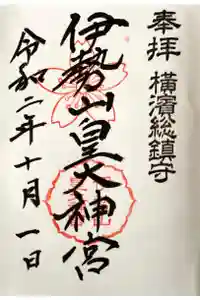 奉拝 横濱総鎮守
伊勢山皇大神宮
令和二年十月一日